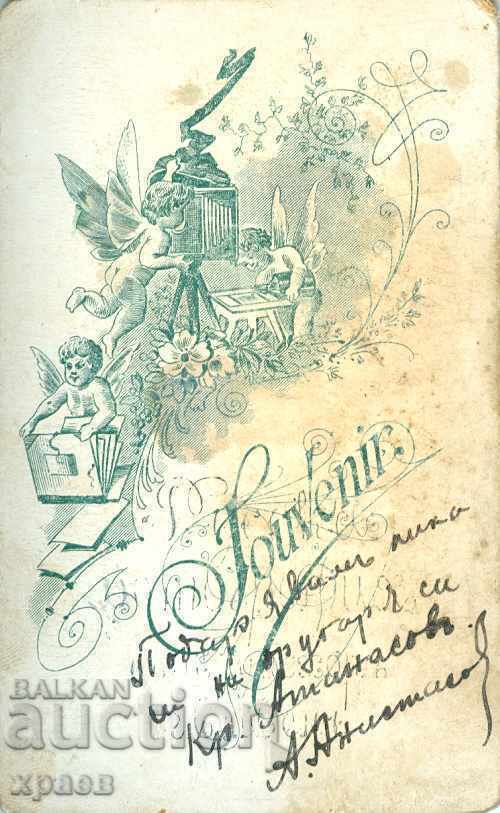 Souvenir.
Подарявамъ лика
ми на другаря си
Кр. Атанасовъ.
А. Анастасов
BALKAN
auction
храов